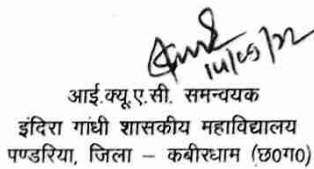 14/05/22
आई.क्यू.ए.सी. समन्वयक
इंदिरा गांधी शासकीय महाविद्यालय
पण्डरिया, जिला – कबीरधाम (छ०ग०)